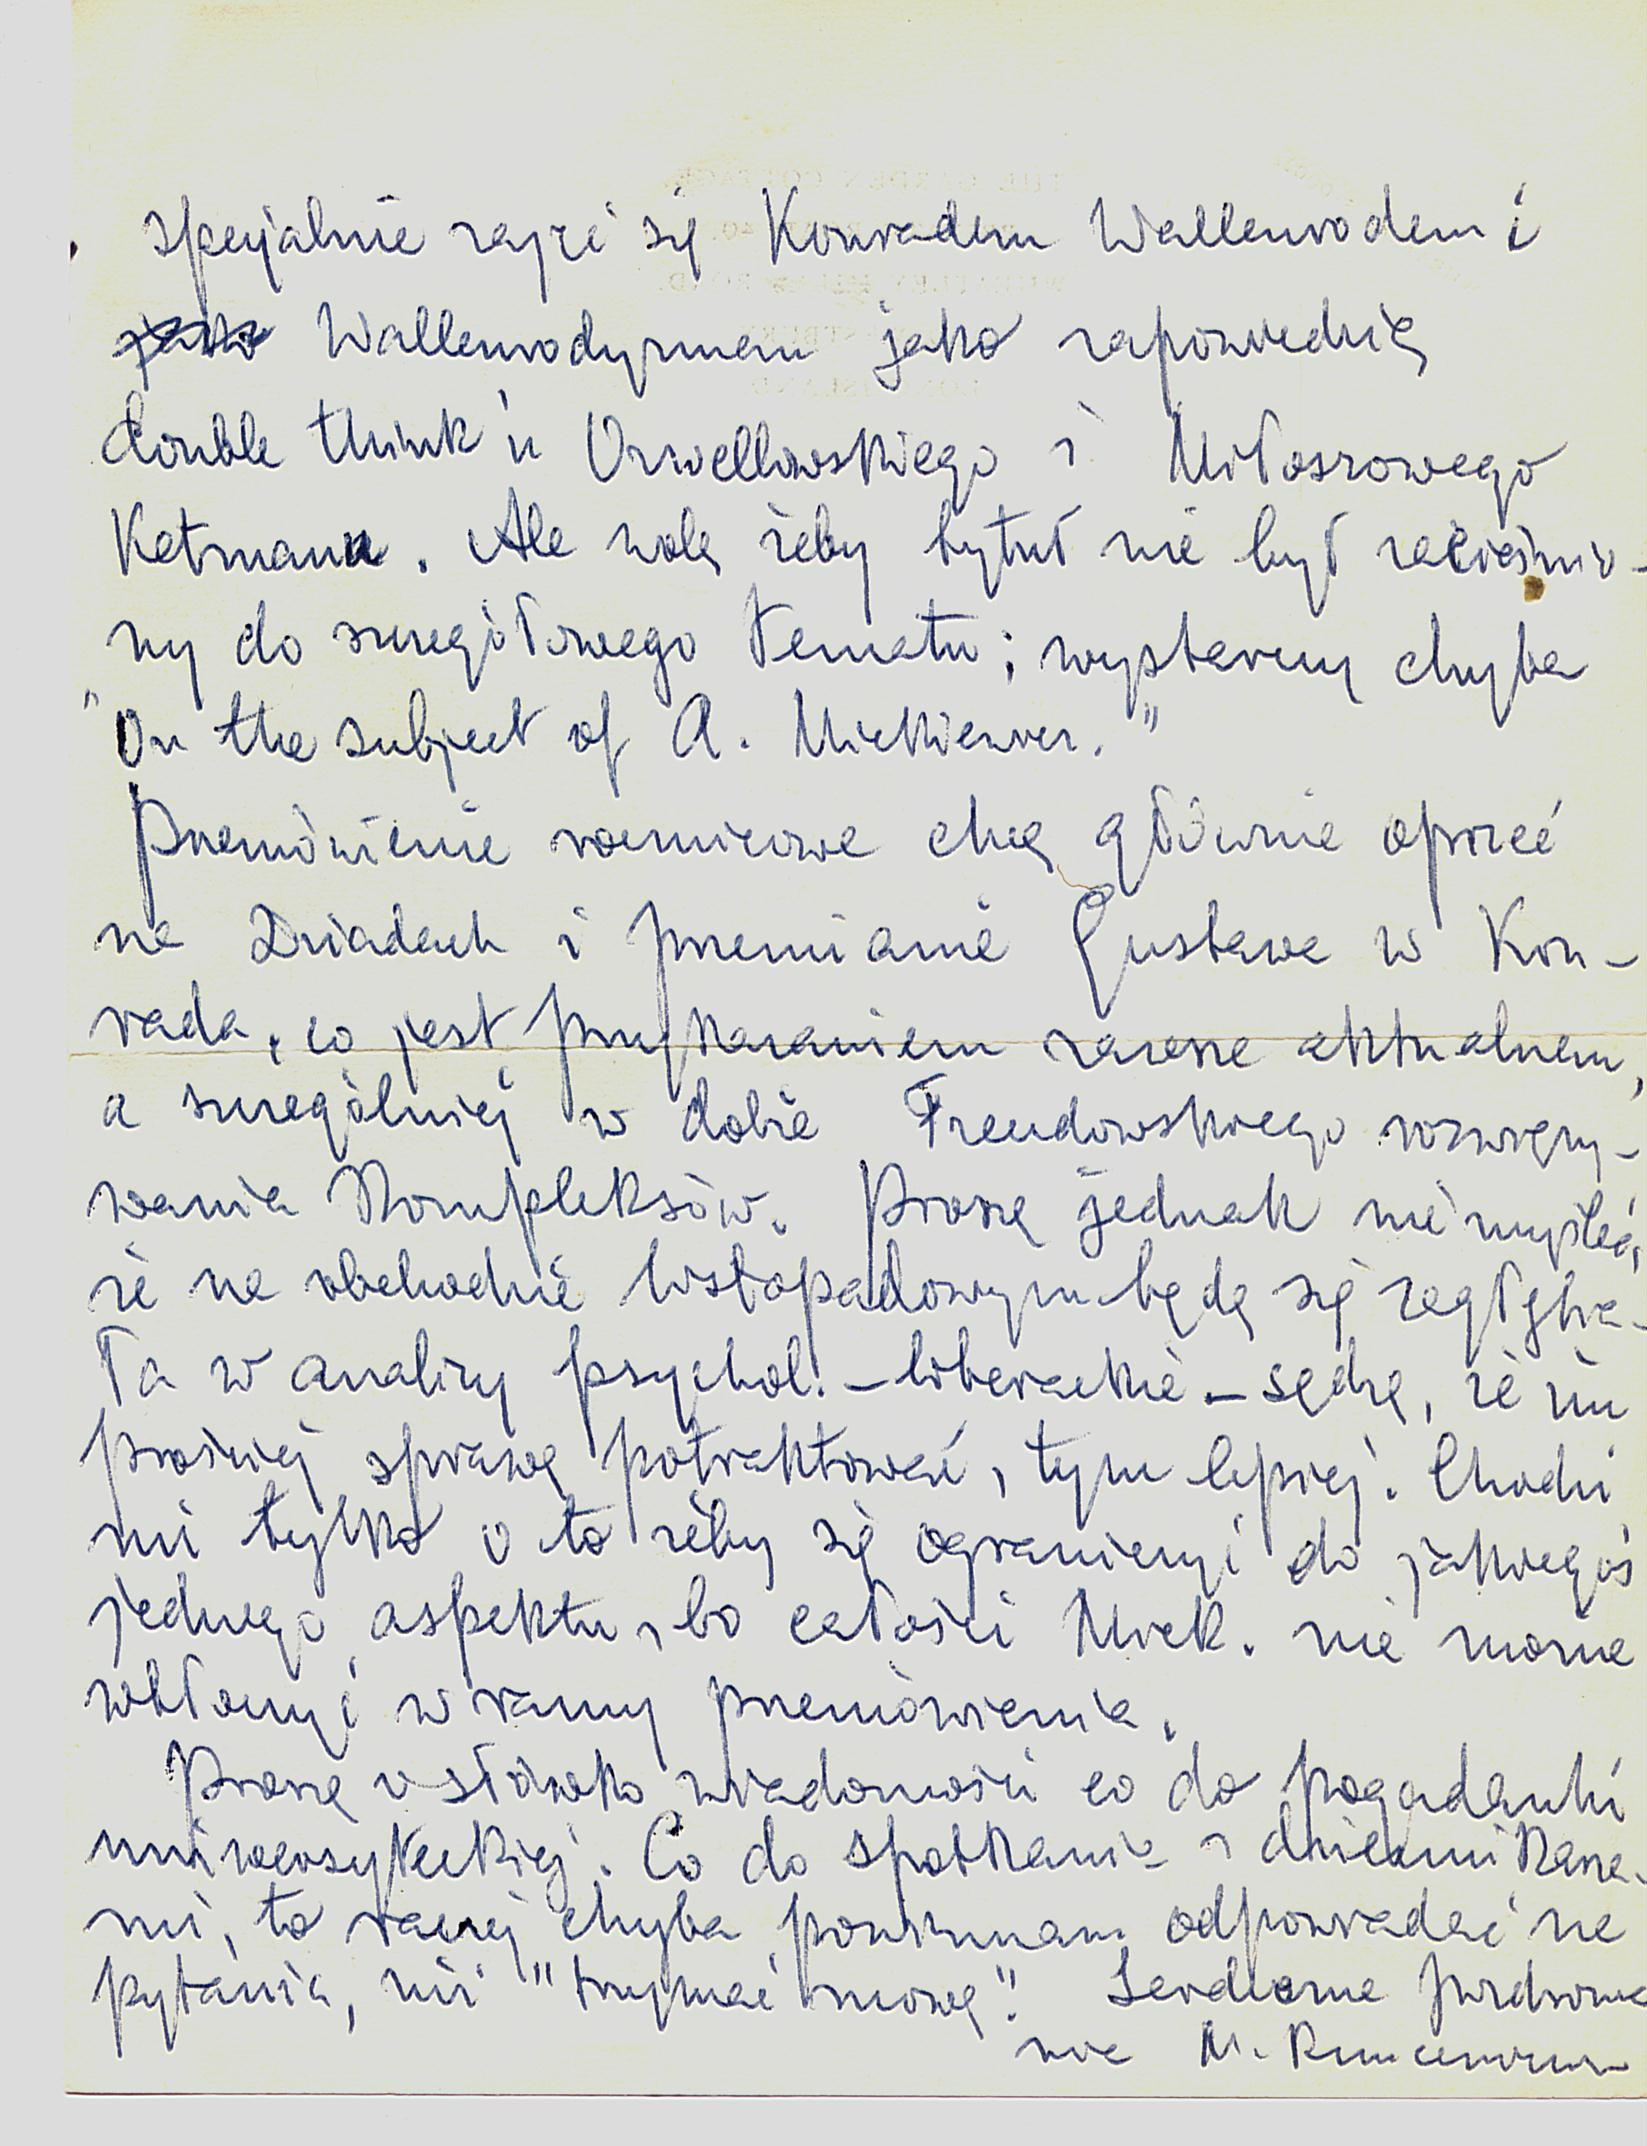 specjalnie zająć się Konradem Wallenrodem i
jako Wallenrodyzmem jako zapowiedzią
double think'u Orwellowskiego i Miłoszowego
Ketmanu. Ale wolę żeby tytuł nie był zacieśnio-
ny do szczegółowego tematu; wystarczy chyba
"On the subject of A. Mickiewicz."
Przemówienie rocznicowe chcę głównie oprzeć
na Dziadach i przemianie Gustawa w Kon-
rada, co jest przykazaniem zawsze aktualnem,
a szczególniej w dobie Freudowskiego rozwiązy-
wania kompleksów. Proszę jednak nie myśleć,
że na obchodzie listopadowym będę się zagłębia-
ła w analizy psychol.-literackie - sądzę, że im
prościej sprawę potraktować, tym lepiej. Chodzi
mi tylko o to żeby się ograniczyć do jakiegoś
jednego aspektu, bo całości Mick. nie można
wtłoczyć w ramy przemówienia.
Proszę o słówko wiadomości co do pogadanki
uniwersyteckiej. Co do spotkania z dziennikarza-
mi, to raczej chyba powinnam odpowiadać na
pytania, niż "trzymać mowę". Serdeczne pozdrowie
nia M.